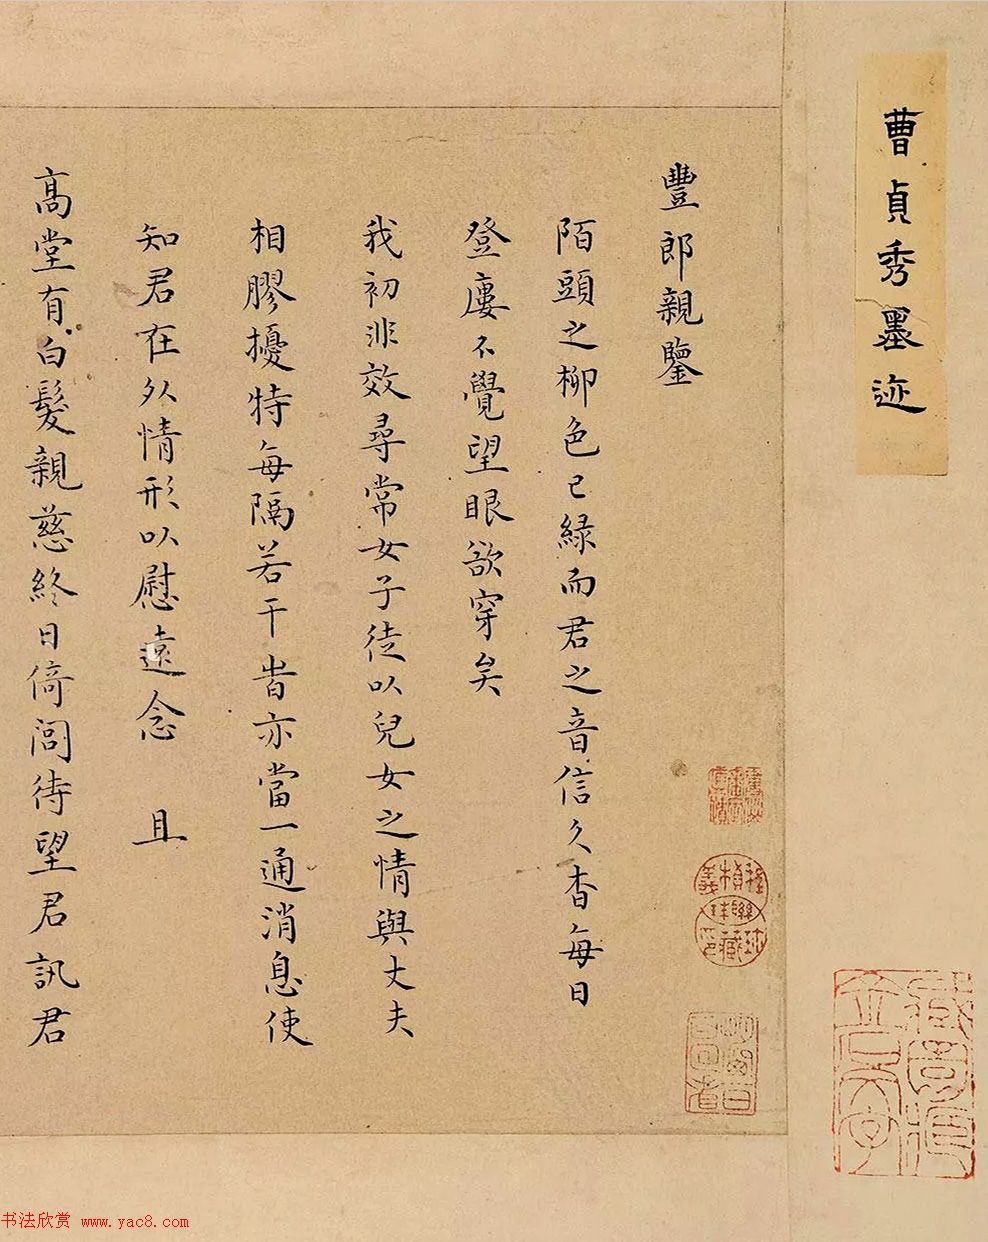 曹貞秀墨迹
豐郎親鑒
陌頭之柳色已緑而君之音信久杳每日
登廔不覺望眼欲穿矣
我初非效尋常女子徒以兒女之情與丈夫
相膠擾特每隔若干時亦當一通消息使
知君在外情形以慰遠念 且
高堂有白髮親慈終日倚閭待望君訊君
书法欣赏 www.yac8.com